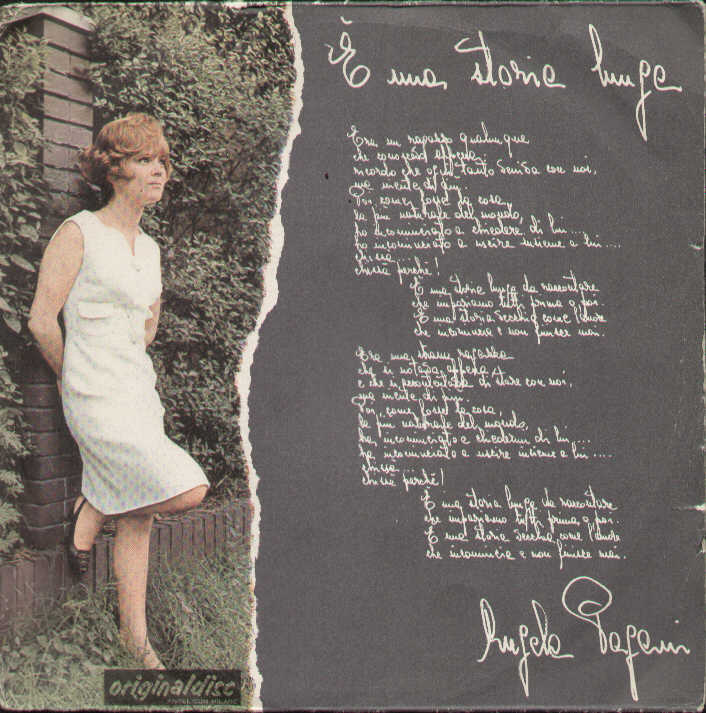 È una storia lunga
Era un ragazzo qualunque
che conoscevo appena
ricordo che ogni tanto usciva con noi,
ma niente di più.
Poi come fosse la cosa
la più naturale del mondo,
ho incominciato a chiedere di lui....
ho incominciato a uscire insieme a lui....
chissà...
chissà perché!
È una storia lunga da raccontare
che impariamo tutti prima o poi.
È una storia vecchia come l'amore
che incomincia e non finisce mai.
Era una strana ragazza
che si notava appena
e che si accontentava di stare con noi,
ma niente di più.
Poi, come fosse la cosa,
la più naturale del mondo,
ha incominciato a chiedermi di lui....
ha incominciato a uscire insieme a lui....
chissà....
chissà perché!
È una storia lunga da raccontare
che impariamo tutti prima o poi.
È una storia vecchia come l'amore
che incomincia e non finisce mai.
Angela Pagani
originaldisc